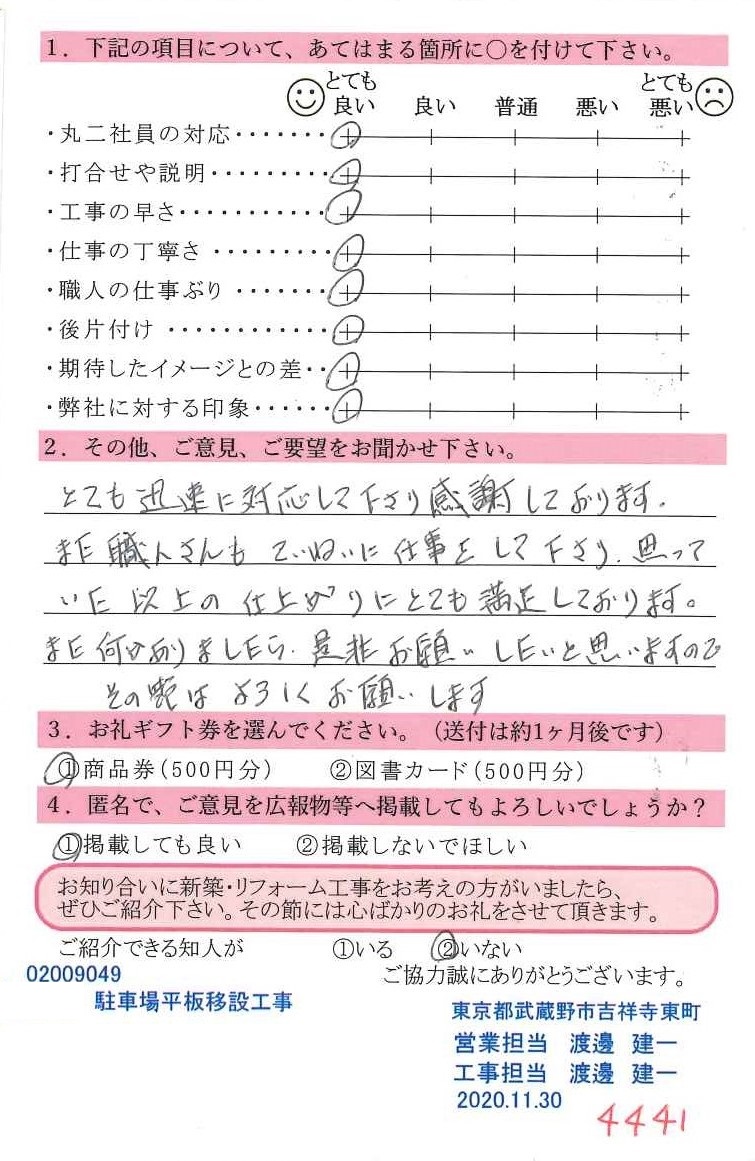 1．下記の項目について、あてはまる箇所に○を付けて下さい。
とても良い 良い 普通 悪い とても悪い
・丸二社員の対応・・・・・・・
・打合せや説明・・・・・・・・・
・工事の早さ・・・・・・・・・・・
・仕事の丁寧さ・・・・・・・・・
・職人の仕事ぶり・・・・・・・
・後片付け・・・・・・・・・・・・
・期待したイメージとの差・・
・弊社に対する印象・・・・・・
2．その他、ご意見、ご要望をお聞かせ下さい。
とても迅速に対応して下さり感謝しております。
また職人さんもていねいに仕事をして下さり、思って
いた以上の仕上がりにとても満足しております。
また何かありましたら、是非お願いしたいと思いますので
その際はよろしくお願いします
3．お礼ギフト券を選んでください。（送付は約1ヶ月後です）
①商品券(500円分) ②図書カード(500円分)
4．匿名で、ご意見を広報物等へ掲載してもよろしいでしょうか？
①掲載しても良い ②掲載しないでほしい
お知り合いに新築・リフォーム工事をお考えの方がいましたら、
ぜひご紹介下さい。その節には心ばかりのお礼をさせて頂きます。
ご紹介できる知人が ①いる ②いない
02009049
ご協力誠にありがとうございます。
駐車場平板移設工事
東京都武蔵野市吉祥寺東町
営業担当 渡邊 建一
工事担当 渡邊 建一
2020.11.30
4441